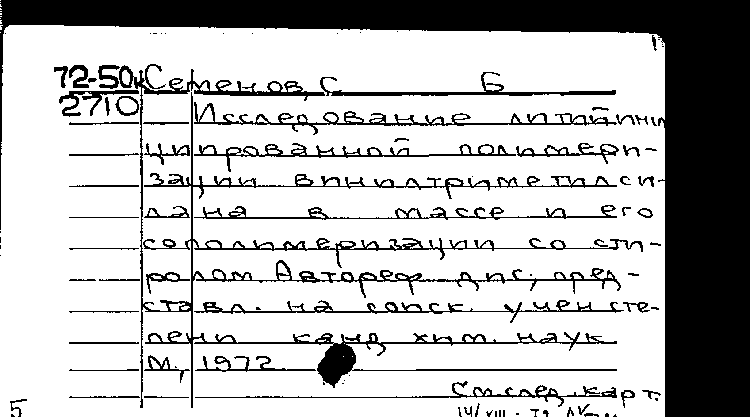 72-50к Семенов, С Б
2710 Исследование литийини
ципрованной полимери-
зации винилтриметилси-
лана в массе и его
сополимеризации со сти-
ролом. Автореф дис., пред-
ставл. на соиск. учен сте-
пени канд хим. наук
М., 1972
См след. карт.
5